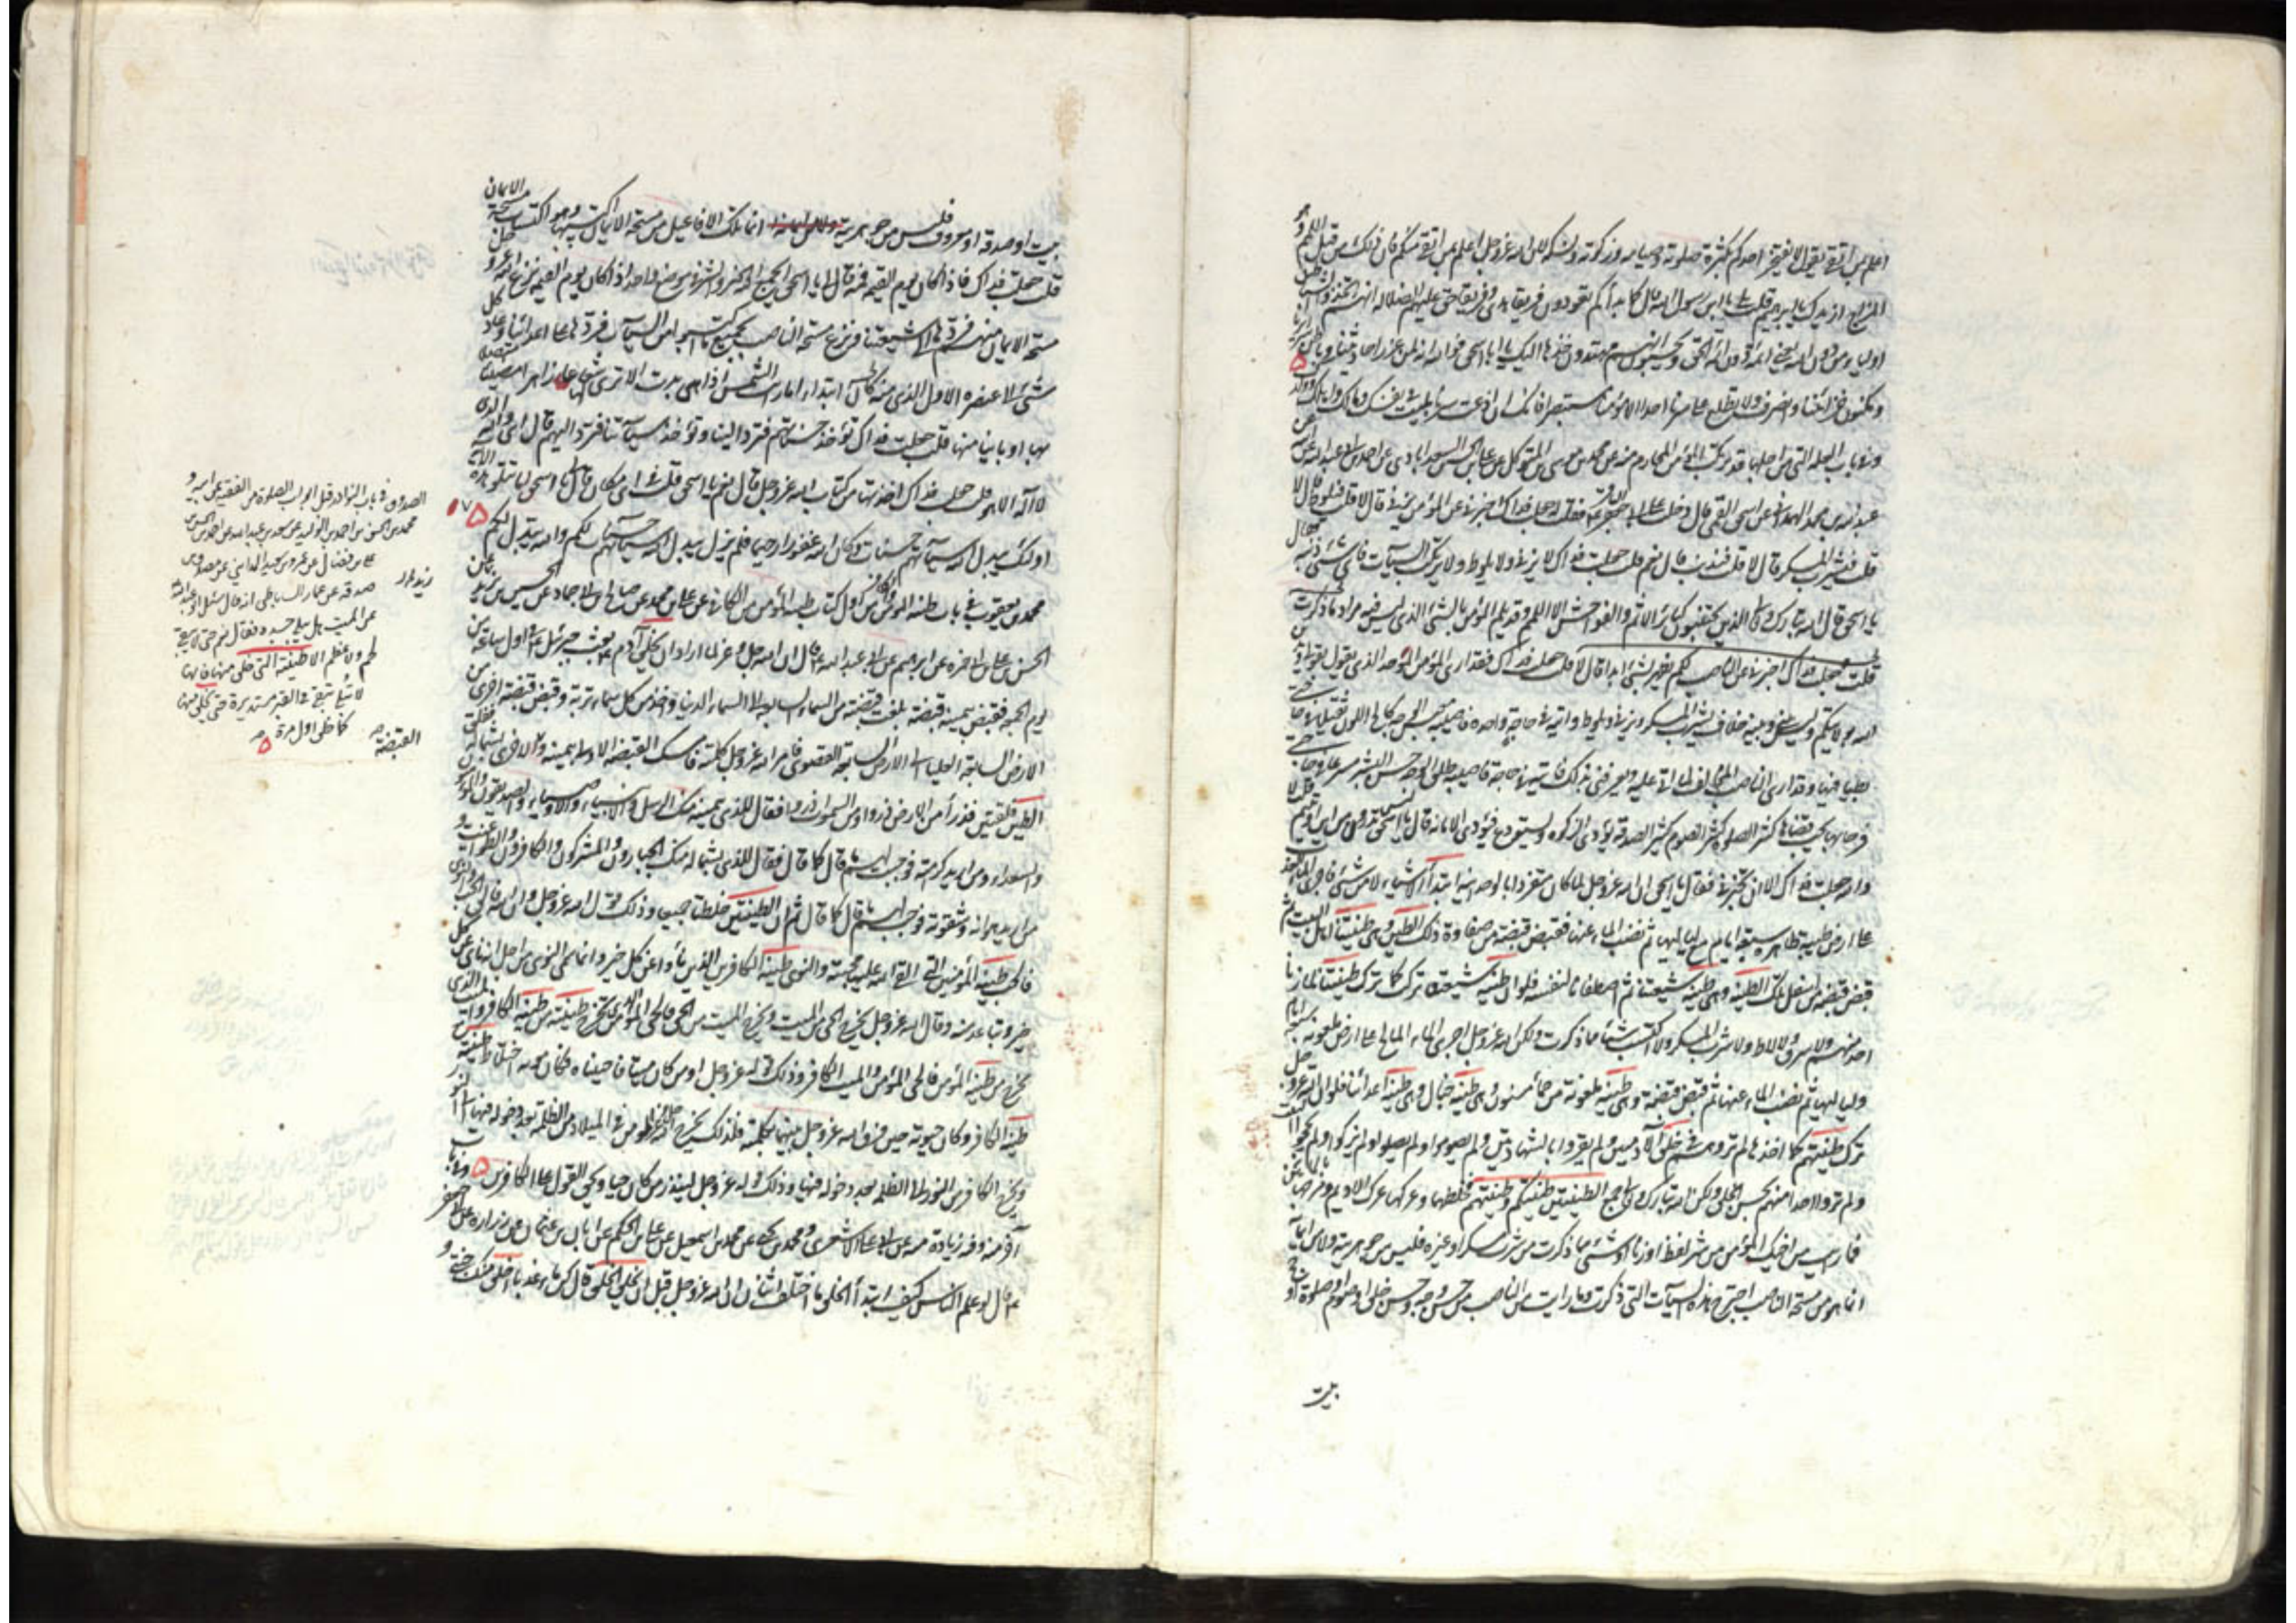 اعلم بمن اتقى يقول لا يفتخر احدكم بكثرة صلوته وصيامه وزكوته ونسكه لان الله عز وجل اعلم بمن اتقى منكم فان ذلك من قبل اللمم وهو
المزاج ازيدك يا ابرهيم قلت بلى يا ابن رسول الله قال كما بدأكم تعودون فريقا هدى وفريقا حق عليهم الضلالة انهم اتخذوا الشياطين
اولياء من دون الله يعني ائمة دون ائمة الحق ويحسبون انهم مهتدون خذها اليك يا ابا اسحق فوالله انه لمن غرر احاديثنا وباطن سرايرنا
ومكنون خزائننا وانصرف ولا تطلع على سرنا احدا الا مؤمنا مستبصرا فانك ان اذعت سرنا بليت في نفسك ومالك واهلك وولدك
وفي باب العلة التي من اجلها قد يرتكب المؤمن المحارم منه عن محمد بن موسى بن المتوكل عن علي بن الحسين السعدابادي عن احمد بن ابي عبد الله عن
عبد الله بن محمد الهمداني عن اسحق القمي قال دخلت على ابي جعفر الباقر ع فقلت له جعلت فداك اخبرني عن المؤمن يزني قال لا قلت فيلوط قال لا
قلت فيشرب المسكر قال لا قلت فيذنب قال نعم قلت جعلت فداك لا يزني ولا يلوط ولا يرتكب السيآت فاي شئ ذنبه فقال
يا اسحق قال الله تبارك وتعالى الذين يجتنبون كبائر الاثم والفواحش الا اللمم وقد يلم المؤمن بالشئ الذي ليس فيه مراد ما ذكرت
قلت جعلت فداك اخبرني عن الناصب لكم يطهر بشئ ابدا قال لا قلت جعلت فداك فقد ارى المؤمن الموحد الذي يقول بقولي
الله بولايتكم وليس بيني وبينه خلاف يشرب المسكر ويزني ويلوط وآتيه في حاجة واحدة فاصيبه معبس الوجه كالح اللون ثقيلا في حاجتي
بطيئا فيها وقد ارى الناصب المخالف لما انا عليه ويعرفني بذلك فآتيه في حاجة فاصيبه طلق الوجه حسن البشر متسرعا في حاجتي
فرحا بها يحب قضاها كثير الصلوة كثير الصوم كثير الصدقة يؤدي الزكوة ويستودع فيؤدي الامانة قال يا اسحق ليس تدرون من اين اوتيتم قلت لا
والله جعلت فداك الا ان تخبرني فقال يا اسحق ان الله عز وجل لما كان متفردا بالوحدانية ابتدأ الاشياء لا من شئ فاجرى الماء العذب
على ارض طيبة طاهرة سبعة ايام مع لياليها ثم نضب الماء عنها فقبض قبضة من صفاوة ذلك الطين وهي طينتنا اهل البيت ثم
قبض قبضة من اسفل تلك الطينة وهي طينة شيعتنا ثم اصطفانا لنفسه فلو ان طينة شيعتنا تركت كما تركت طينتنا لما زنا
احد منهم ولا سرق ولا لاط ولا شرب المسكر ولا اكتسب شيئا مما ذكرت ولكن الله عز وجل اجرى الماء المالح على ارض ملعونة سبعة ايام
ولياليها ثم نضب الماء عنها ثم قبض قبضة وهي طينة ملعونة من حمأ مسنون وهي طينة خبال وهي طينة اعدائنا فلو ان الله عز وجل
ترك طينتهم كما اخذها لم تروهم في خلق الآدميين ولم يقروا بالشهادتين ولم يصوموا ولم يصلوا ولم يزكوا ولم يحجوا البيت
ولم تروا احدا منهم بحسن الخلق ولكن الله تبارك وتعالى جمع الطينتين طينتكم وطينتهم فخلطها وعركها عرك الاديم ومزجها بالمائين
فما رايت من اخيك المؤمن من شر لفظ او زنا او شئ مما ذكرت من شرب مسكر او غيره فليس من جوهريته ولا من ايمانه
انما هو من مسحة الناصب اجترح هذه السيآت التي ذكرت وما رايت من الناصب من حسن وجه وحسن خلق او صوم او صلوة او حج
بيت
بيت او صدقة او معروف فليس من جوهريته انما تلك الافاعيل من مسحة الايمان اكتسبها وهو اكتساب مسحة الايمان
قلت جعلت فداك فاذا كان يوم القيمة فمه قال لي يا اسحق ايجمع الله الخير والشر في موضع واحد اذا كان يوم القيمة نزع الله عز وجل
مسحة الايمان منهم فردها الى شيعتنا ونزع مسحة الناصب بجميع ما اكتسبوا من السيآت فردها على اعدائنا وعاد كل
شئ الى عنصره الاول الذي منه كان ابتداء اما رايت الشمس اذا هي بدت الا ترى لها شعاعا زاجرا متصلا
بها او باينا منها قلت جعلت فداك تؤخذ حسناتهم فترد الينا وتؤخذ سيآتنا فترد اليهم قال اي والله الذي
لا اله الا هو قلت جعلت فداك اخذتها من كتاب الله عز وجل قال نعم يا اسحق قلت في اي مكان قال لي يا اسحق اما تتلو هذه الآية
اولئك يبدل الله سيآتهم حسنات وكان الله غفورا رحيما فلم يزل يبدل الله سيآتهم حسنات لكم والله يبدل لكم
محمد بن يعقوب في باب طينة المؤمن والكافر من اول كتاب طينة المؤمن من الكافي عن علي بن محمد عن صالح بن ابي حماد عن الحسين بن يزيد عن
الحسن بن علي بن ابي حمزة عن ابرهيم عن ابي عبد الله ع قال ان الله جل وعز لما اراد ان يخلق آدم ع بعث جبرئل ع في اول ساعة من
يوم الجمعة فقبض بيمينه قبضة بلغت قبضته من السماء السابعة الى السماء الدنيا واخذ من كل سماء تربة وقبض قبضة اخرى من
الارض السابعة العليا الى الارض السابعة القصوى فامر الله عز وجل كلمته فامسك القبضة الاولى بيمينه والاخرى بشماله ففلق
الطين فلقتين فذرأ من الارض ذروا ومن السموات ذروا فقال للذي بيمينه منك الرسل والانبياء والاوصياء والصديقون والمؤمنون
والسعداء ومن اريد كرامته فوجب لهم ما قال كما قال فقال للذي بشماله منك الجبارون والمشركون والكافرون والطواغيت و
من اريد هوانه وشقوته فوجب لهم ما قال كما قال ثم ان الطينتين خلطتا جميعا وذلك قول الله عز وجل ان الله فالق الحب والنوى
فالحب طينة المؤمنين التي القى الله عليه محبته والنوى طينة الكافرين الذين نأوا عن كل خير وانما سمي النوى من اجل انه ناى عن كل
خير وتباعد منه وقال الله عز وجل يخرج الحي من الميت ويخرج الميت من الحي فالحي المؤمن الذي يخرج طينته من طينة الكافر والميت الذي
يخرج من طينة المؤمن فالحي المؤمن والميت الكافر وذلك قوله عز وجل او من كان ميتا فاحييناه فكان موته اختلاط طينته مع
طينة الكافر وكان حيوته حين فرق الله عز وجل بينهما بكلمته فلذلك يخرج الله عز وجل المؤمن في الميلاد من الظلمة بعد دخوله فيها الى النور
ويخرج الكافر من النور الى الظلمة بعد دخوله فيها وذلك قوله عز وجل لينذر من كان حيا ويحق القول على الكافرين وفي باب
آخر منه وفيه زيادة منه عن ابي علي الاشعري ومحمد بن يحيى عن محمد بن اسمعيل عن علي بن الحكم عن ابان بن عثمان عن زرارة عن ابي جعفر
ع قال لو علم الناس كيف ابتدأ الخلق ما اختلف اثنان ان الله عز وجل قبل ان يخلق الخلق قال كن ماء عذبا اخلق منك جنتي و
الصدوق في باب النوادر قبل ابواب الصلوة من الفقيه عن ابيه و
محمد بن الحسن بن احمد بن الوليد عن سعد بن عبد الله عن احمد بن الحسن بن
علي بن فضال عن عمرو بن سعيد المدايني عن مصدق بن
صدقة عن عمار الساباطي انه قال سئل ابو عبد الله
عن الميت هل يبلى جسده فقال نعم حتى لا يبقى
لحم ولا عظم الا طينته التي خلق منها فانها
لا تبلى تبقى في القبر مستديرة حتى يخلق منها
كما خلق اول مرة
القبضة